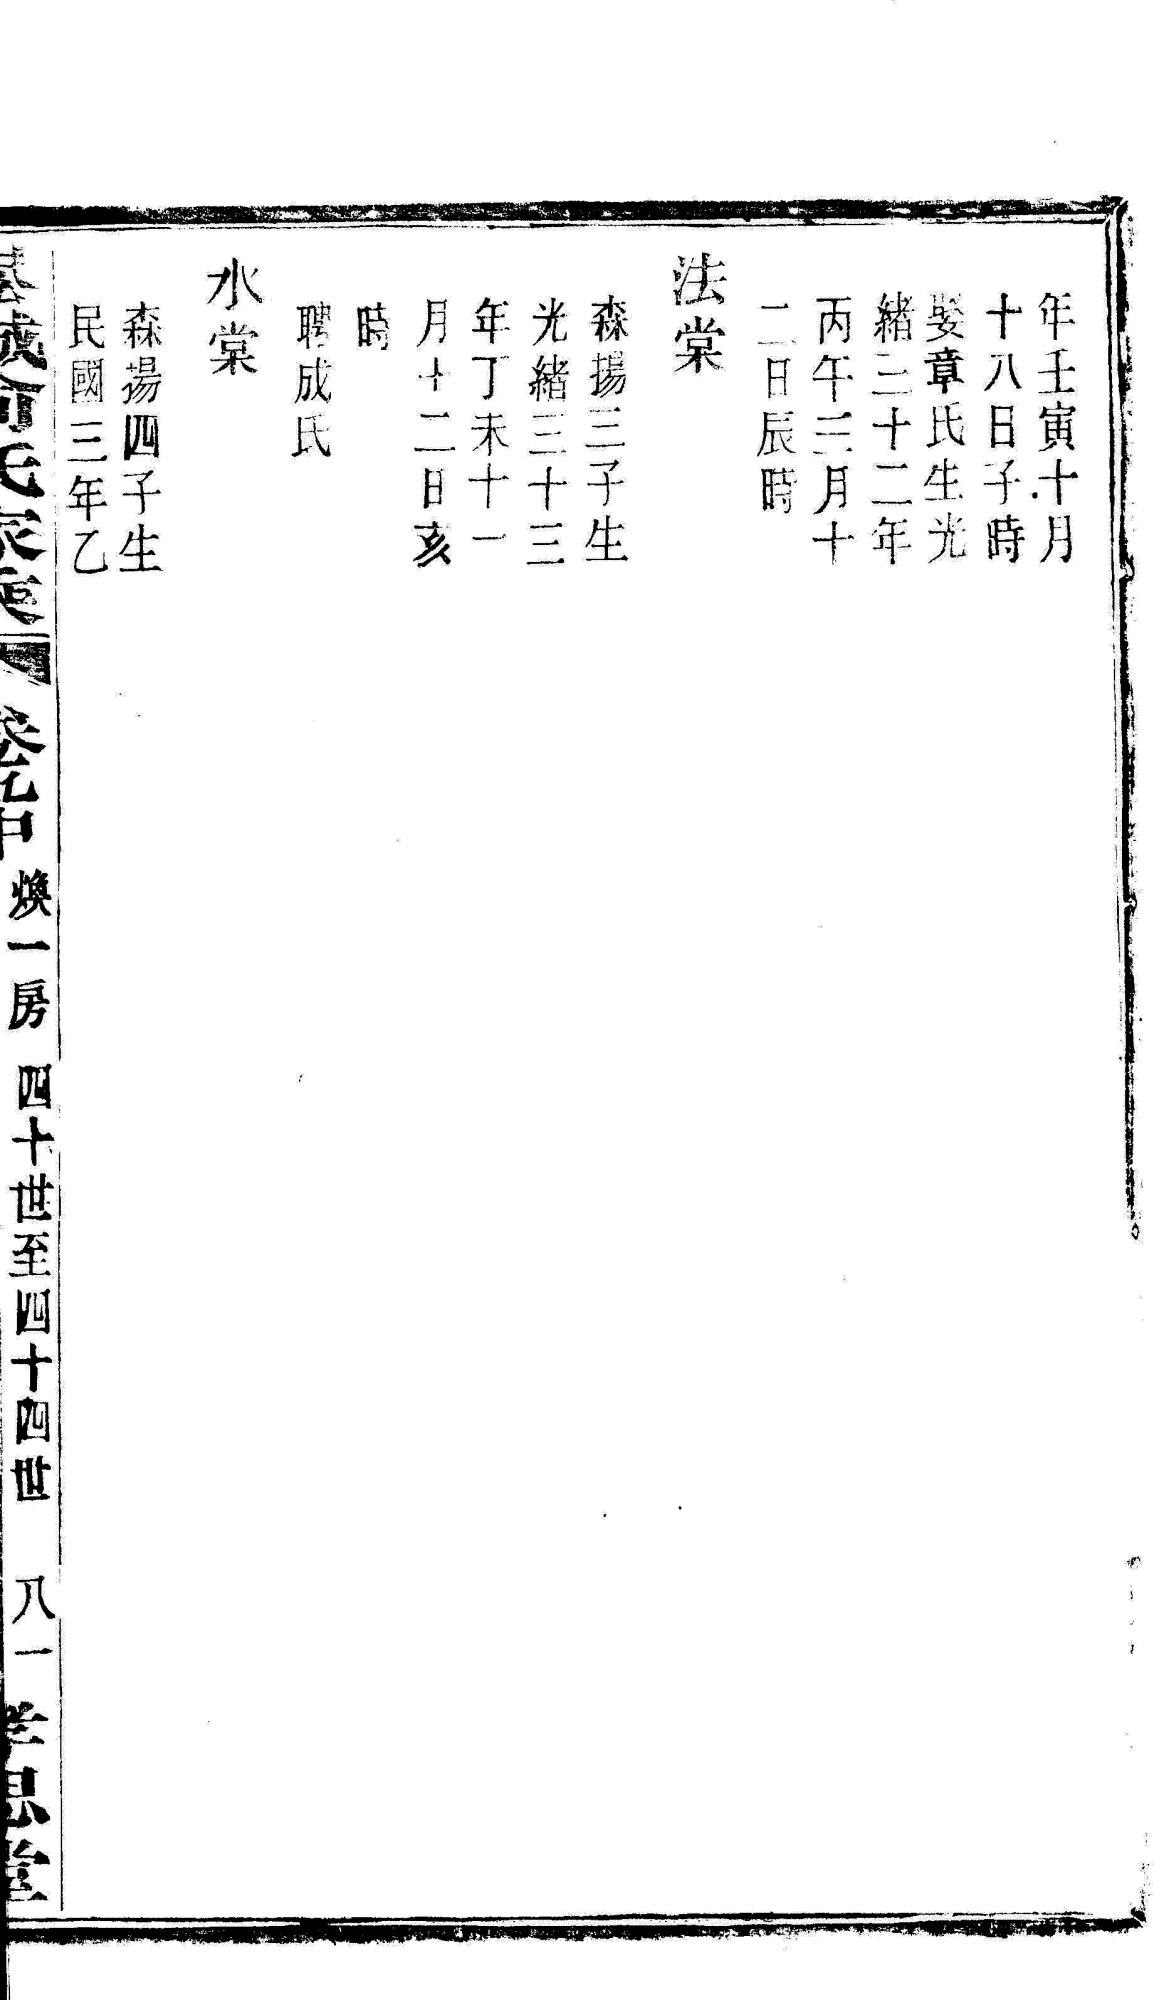 年壬寅十月
十八日子時
娶章氏生光
緒三十二年
丙午三月十
二日辰時
法棠
森揚三子生
光緒三十三
年丁未十一
月十二日亥
時
聘成氏
水棠
森揚四子生
民國三年乙
俞氏家乘
卷
中
煥一房
四十世至四十四世
八一
孝思堂